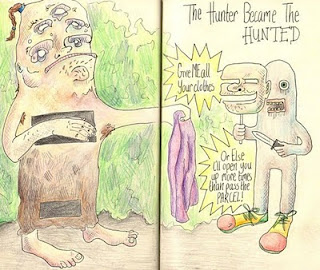 The Hunter Became The
HUNTED
Give ME all
Your clothes
Or Else
I'll open you
up more times
than pass the
PARCEL!